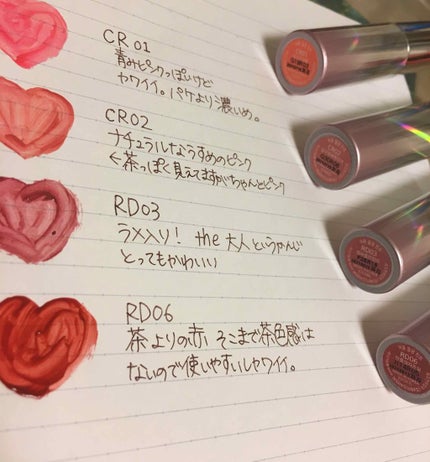 CR 01
青みピンクっぽいけど
ヤワイイ。パケより濃いめ。
CR02
ナチュラルなうすめのピンク
←茶っぽく見えてますがちゃんとピンク
RD03
ラメ入り! the 大人というかんじ
とってもかわいい
RD06
茶よりの赤 そこまで茶色感は
ないので使いやすいしヤワイイ。
CR01
CR02
RD03
RD06